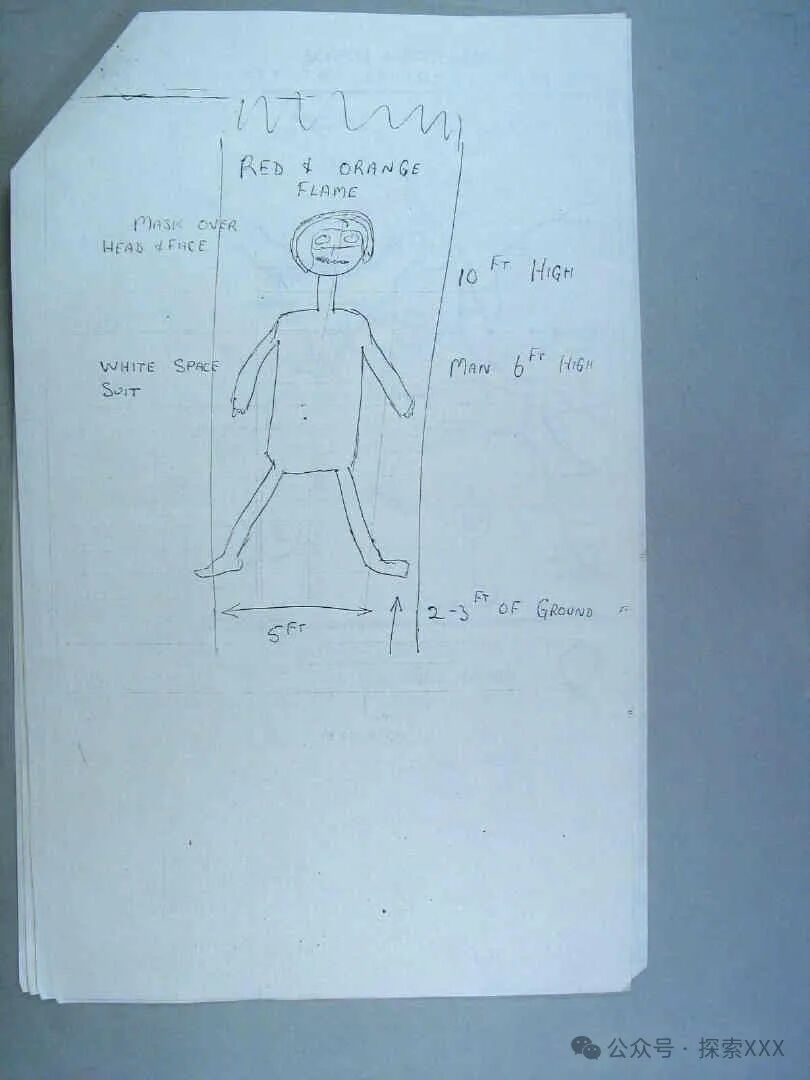 RED & ORANGE
FLAME
MASK OVER
HEAD & FACE
10 FT HIGH
WHITE SPACE
SUIT
MAN 6 FT HIGH
2-3 FT OF GROUND
5 FT
公众号 · 探索XXX